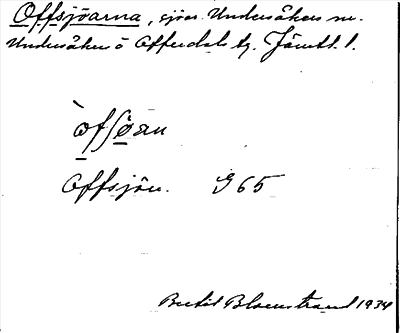 Offsjöarna, sjöar. Undersåkers sn.
Undersåkers o Offerdals tg. Jämtl. l.
òfʃöan
Offsjön. G 65
Bertil Blomstrand 1934